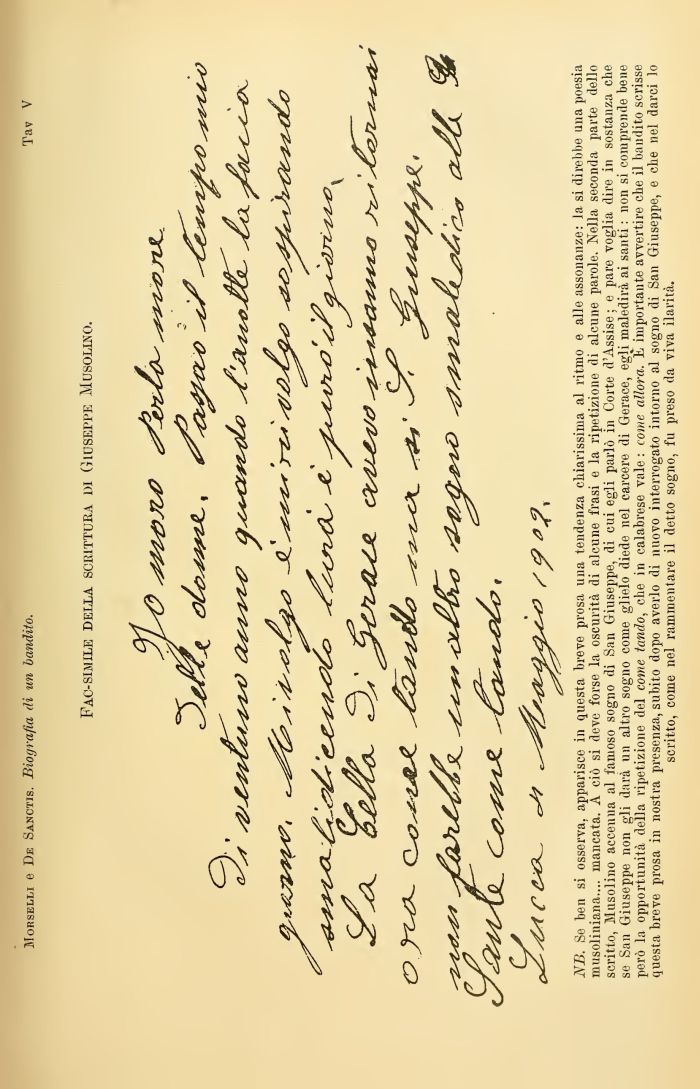 MORSELLI e DE SANCTIS. Biografia di un bandito.
Tav V
FAC-SIMILE DELLA SCRITTURA DI GIUSEPPE MUSOLINO.
Jo moro Perlo more
delle donne. Passaò il tempo mio
di ventuno anno quando l'anotte la facia
guorno. Mivolgo é mirivolgo sospirando
smalidicendo lura é purò il giorno,
La Cella di Gerace avevo insanno ritornai
ora come tando ma si S. Giuseppe.
non farebbe unaltro sogno smaledico alle
Sante come tando.
Lucca Maggio 1902.
NB. Se ben si osserva, apparisce in questa breve prosa una tendenza chiarissima al ritmo e alle assonanze: la si direbbe una poesia
musoliniana.... mancata. A ciò si deve forse la oscurità di alcune frasi e la ripetizione di alcune parole. Nella seconda parte dello
scritto, Musolino accenna al famoso sogno di San Giuseppe, di cui egli parlò in Corte d'Assise; e pare voglia dire in sostanza che
se San Giuseppe non gli darà un altro sogno come glielo diede nel carcere di Gerace, egli maledirà ai santi: non si comprende bene
però la opportunità della ripetizione del come tando, che in calabrese vale: come allora. È importante avvertire che il bandito scrisse
questa breve prosa in nostra presenza, subito dopo averlo di nuovo interrogato intorno al sogno di San Giuseppe, e che nel darci lo
scritto, come nel rammentare il detto sogno, fu preso da viva ilarità.